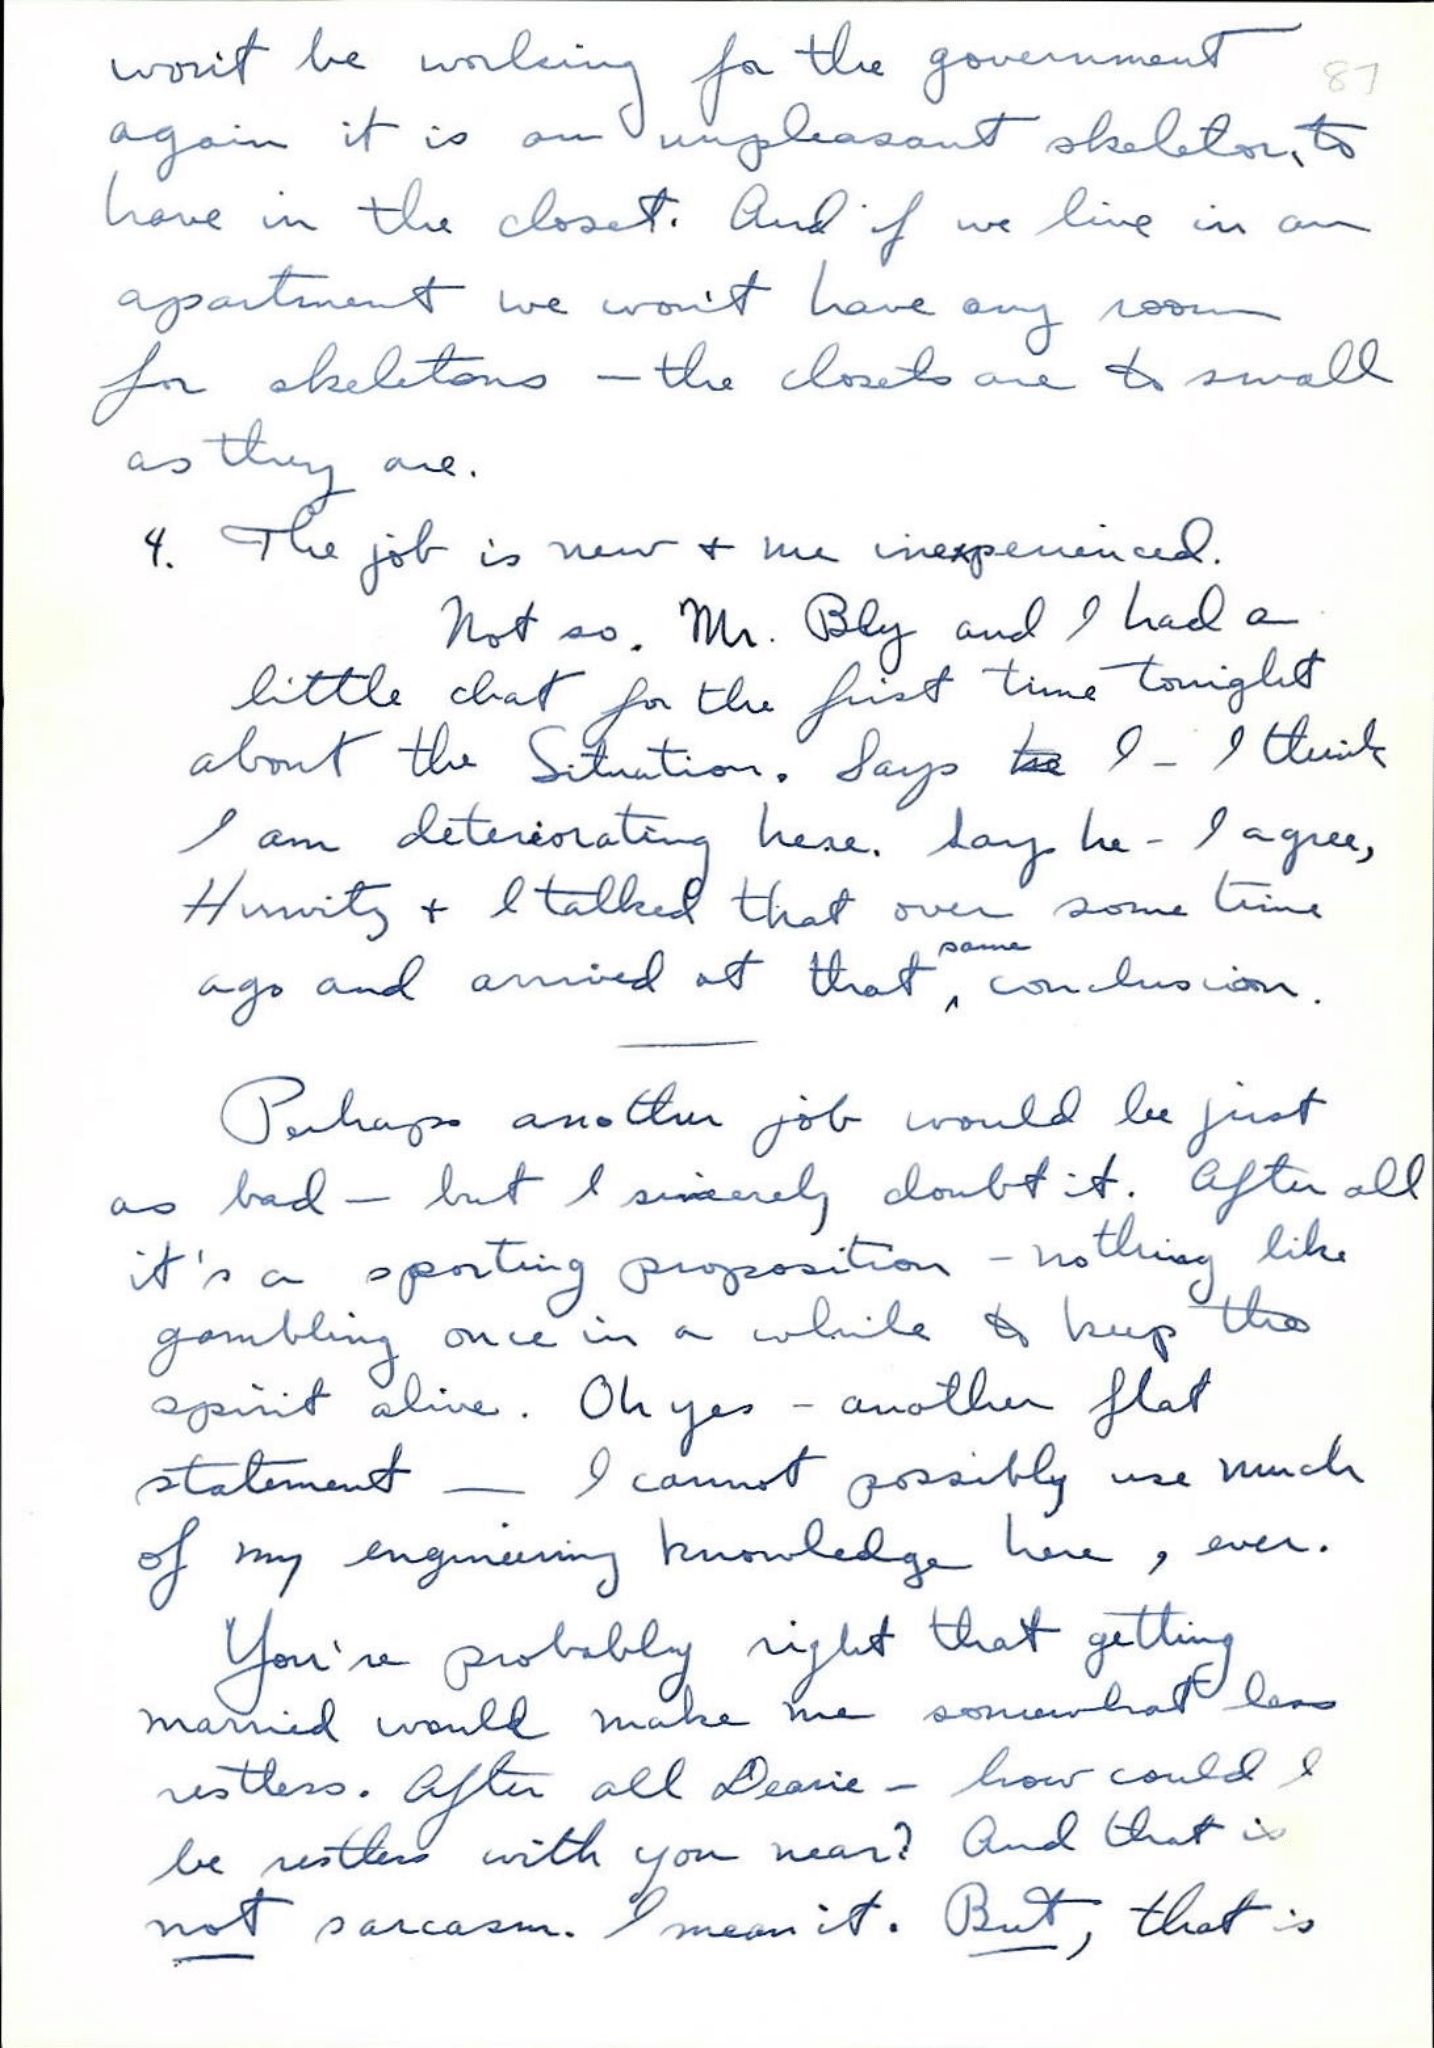 won't be working for the government
87
again it is an unpleasant skeleton to
have in the closet. And if we live in an
apartment we won't have any room
for skeletons – the closets are to small
as they are.
4. The job is new + me inexperienced.
Not so. Mr. Bly and I had a
little chat for the first time tonight
about the Situation. Says he I – I think
I am deteriorating here. Says he – I agree,
Hurwitz + I talked that over some time
ago and arrived at that same conclusion.
Perhaps another job would be just
as bad – but I sincerely doubt it. After all
it's a sporting proposition – nothing like
gambling once in a while to keep the
spirit alive. Oh yes – another flat
statement — I cannot possibly use much
of my engineering knowledge here, ever.
You're probably right that getting
married would make me somewhat less
restless. After all Dearie – how could I
be restless with you near? And that is
not sarcasm. I mean it. But, that is